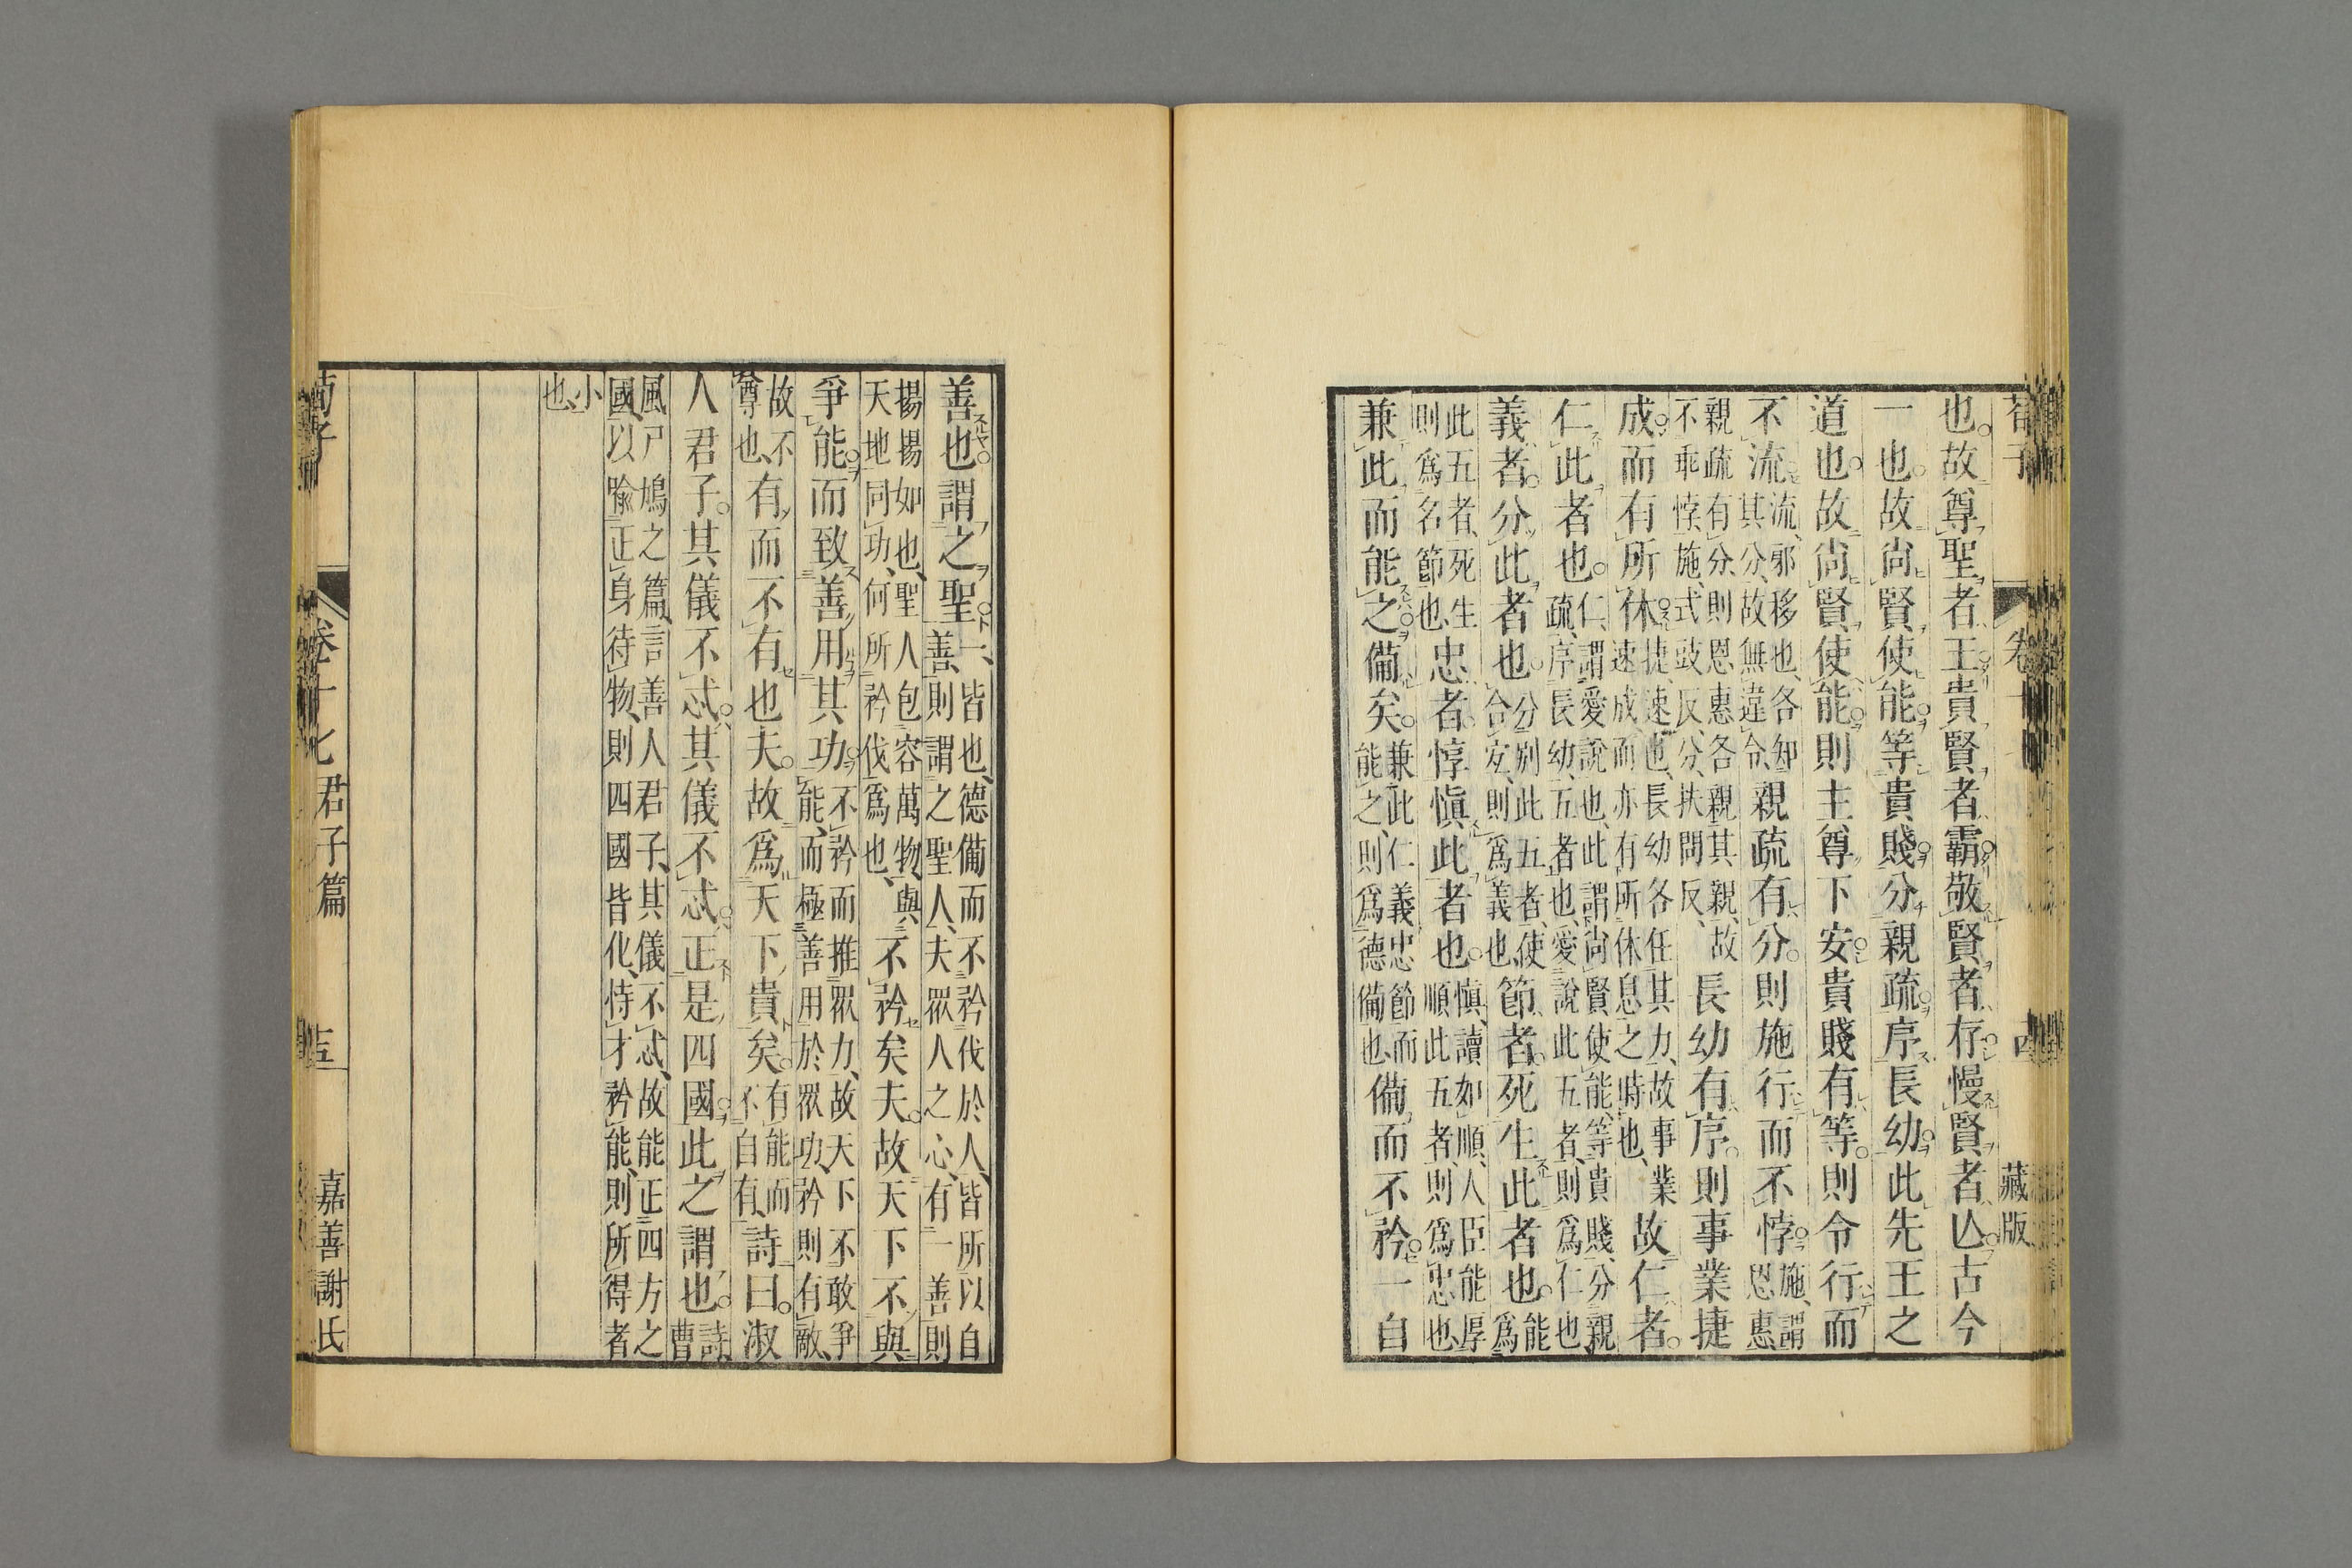 荀子 卷十 四 藏版
也故尊聖者王貴賢者霸敬賢者存慢賢者亾古今
一也故尚賢使能等貴賤分親疏序長幼此先王之
道也故尚賢使能則主尊下安貴賤有等則令行而
不流流邪移也各知其分故無違令親疏有分則施行而不悖施謂恩惠
親疏有分則恩惠各親其親故不乖悖施式豉反分扶問反長幼有序則事業捷
成而有所休捷速也長幼各任其力故事業速成而亦有所休息之時也故仁者
仁此者也仁謂愛說也此謂尚賢使能等貴賤分親疏序長幼五者也愛說此五者則爲仁也
義者分此者也分別此五者使合宜則爲義也節者死生此者也能爲
此五者死生則爲名節也忠者惇慎此者也慎讀如順人臣能厚順此五者則爲忠也
兼此而能之備矣兼此仁義忠節而能之則爲德備也備而不矜一自
善也謂之聖一皆也德備而不矜伐於人皆所以自善則謂之聖人夫眾人之心有一善則
揚揚如也聖人包容萬物與天地同功何所矜伐爲也不矜矣夫故天下不與
爭能而致善用其功不矜而推眾力故天下不敢爭能而極善用於眾功矜則有敵
故不尊也有而不有也夫故爲天下貴矣有能而不自有詩曰淑
人君子其儀不忒其儀不忒正是四國此之謂也詩曹
風尸鳩之篇言善人君子其儀不忒故能正四方之國以喻正身待物則四國皆化恃才矜能則所得者
小也
荀子 卷十七 君子篇 五 嘉善謝氏